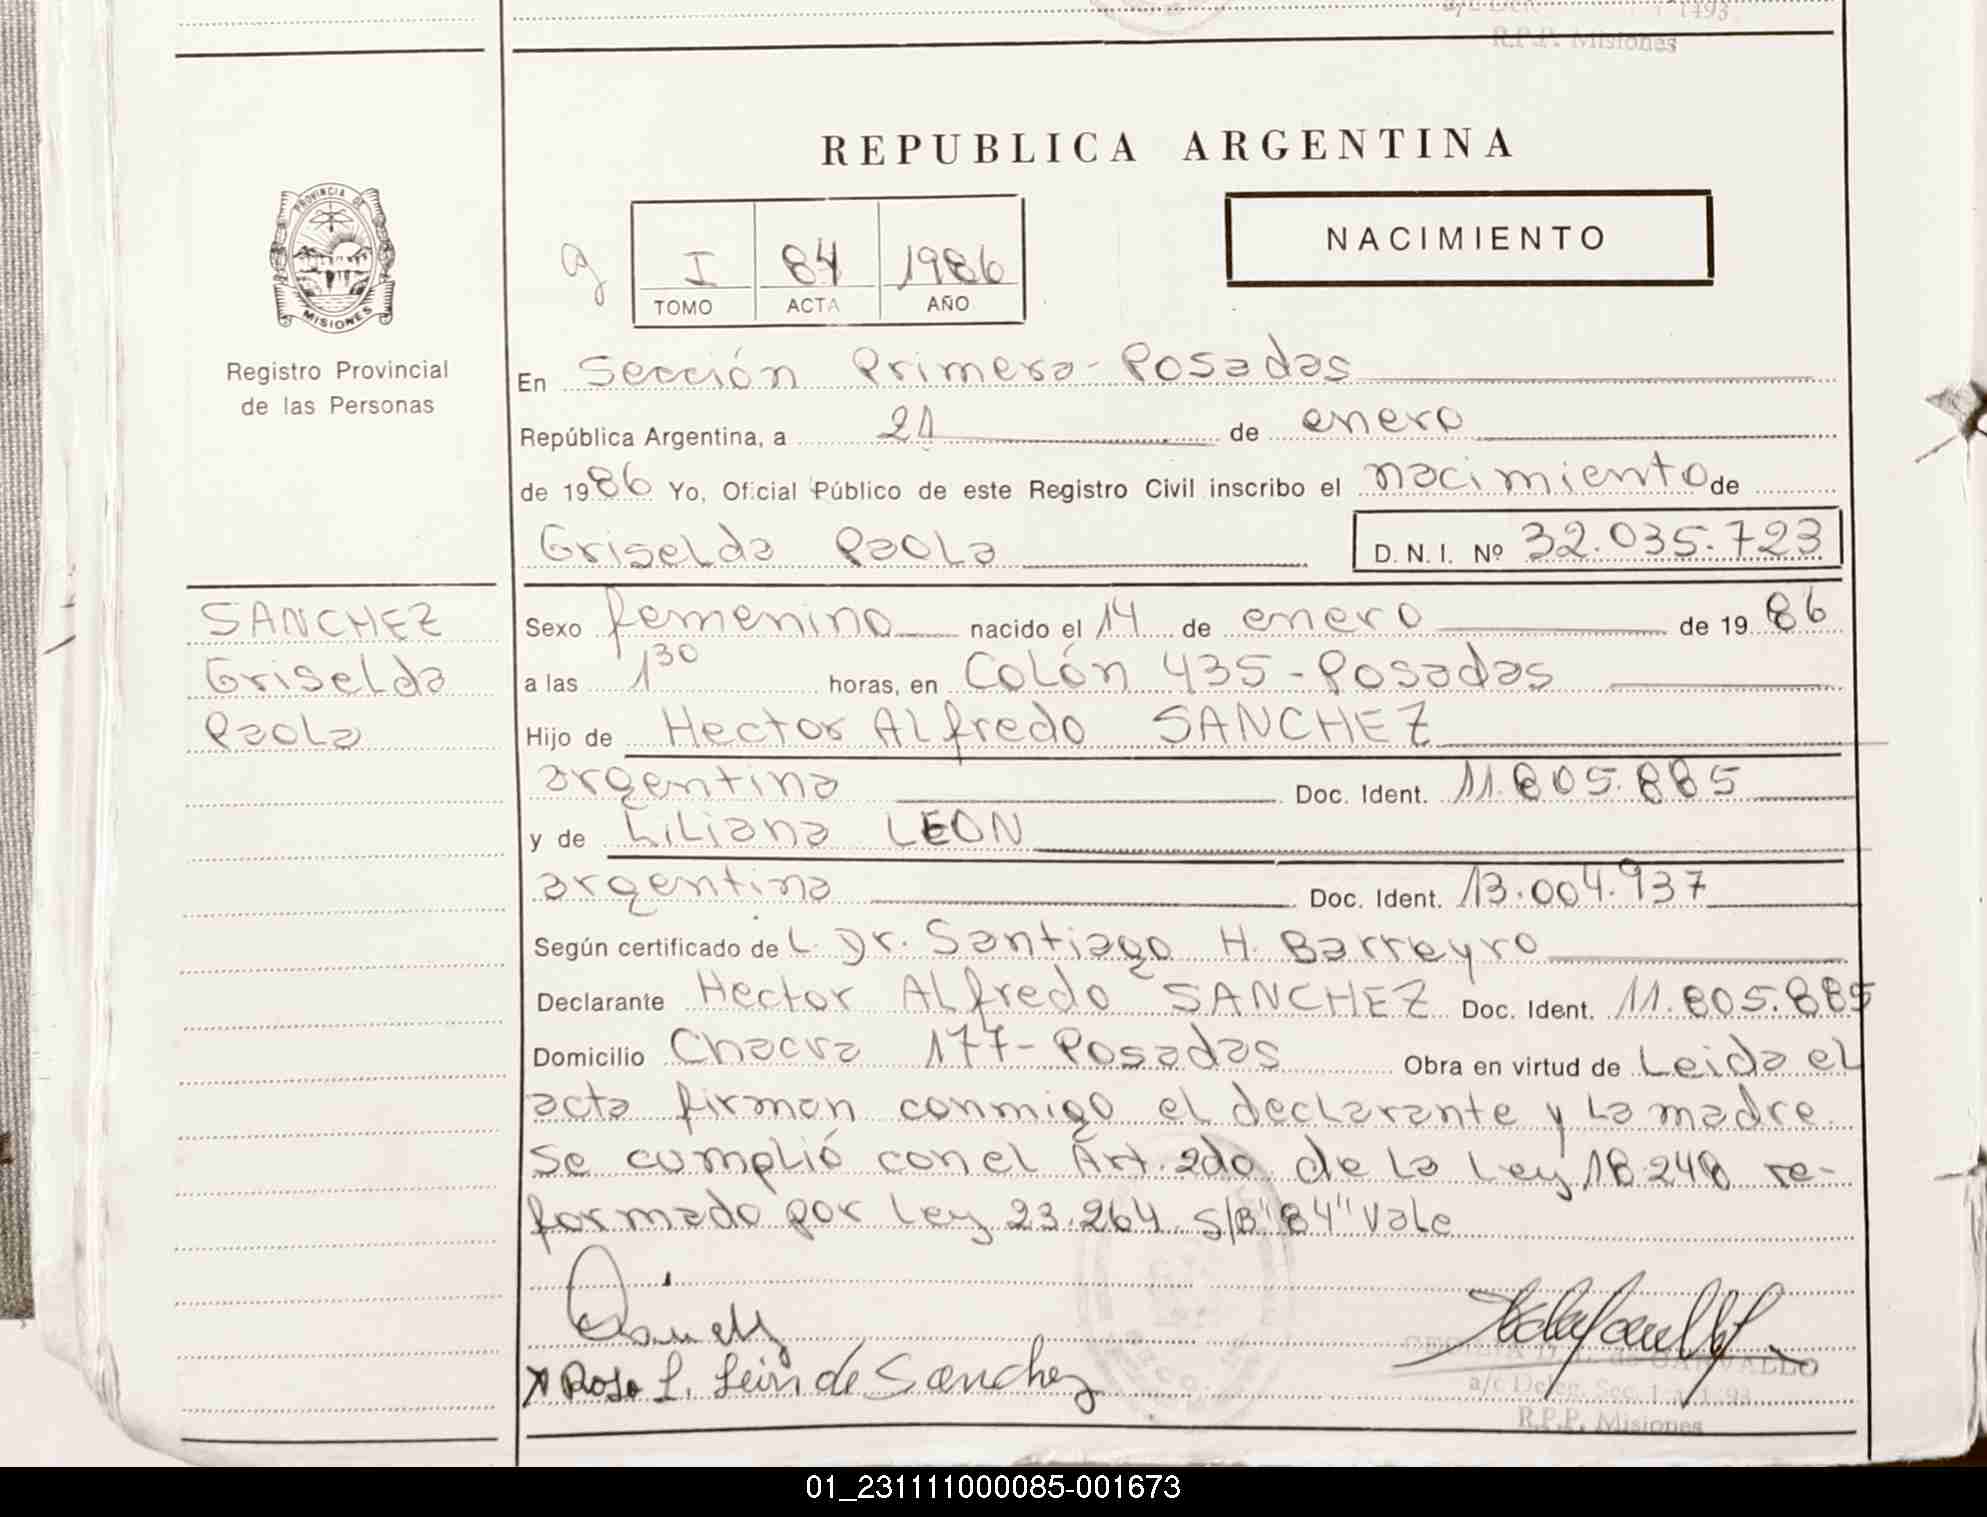 1493
R.P.P. Misiones
REPUBLICA ARGENTINA
PROVINCIA DE
MISIONES
Registro Provincial
de las Personas
I 84 1986
TOMO ACTA AÑO
NACIMIENTO
En Sección Primera - Posadas
República Argentina, a 21 de enero
de 1986 Yo, Oficial Público de este Registro Civil inscribo el nacimiento de
Griselda Paola D.N.I. Nº 32.035.723
SANCHEZ
Griselda
Paola
Sexo femenino nacido el 14 de enero de 1986
a las 1 30 horas, en Colón 435 - Posadas
Hijo de Hector Alfredo SANCHEZ
argentina Doc. Ident. 11.805.885
y de Liliana LEON
argentina Doc. Ident. 13.004.937
Según certificado de L. Dr. Santiago H. Barreyro
Declarante Hector Alfredo SANCHEZ Doc. Ident. 11.805.885
Domicilio Chacra 177 - Posadas Obra en virtud de Leida el
acta firman conmigo el declarante y la madre.
Se cumplió con el Art. 2do de la Ley 18.248 re-
formado por Ley 23.264. S/B "84" Vale
Rosa L. León de Sanchez
de CARVALLO
a/c Deleg. Sec. 1
R.P.P. Misiones
01_231111000085-001673